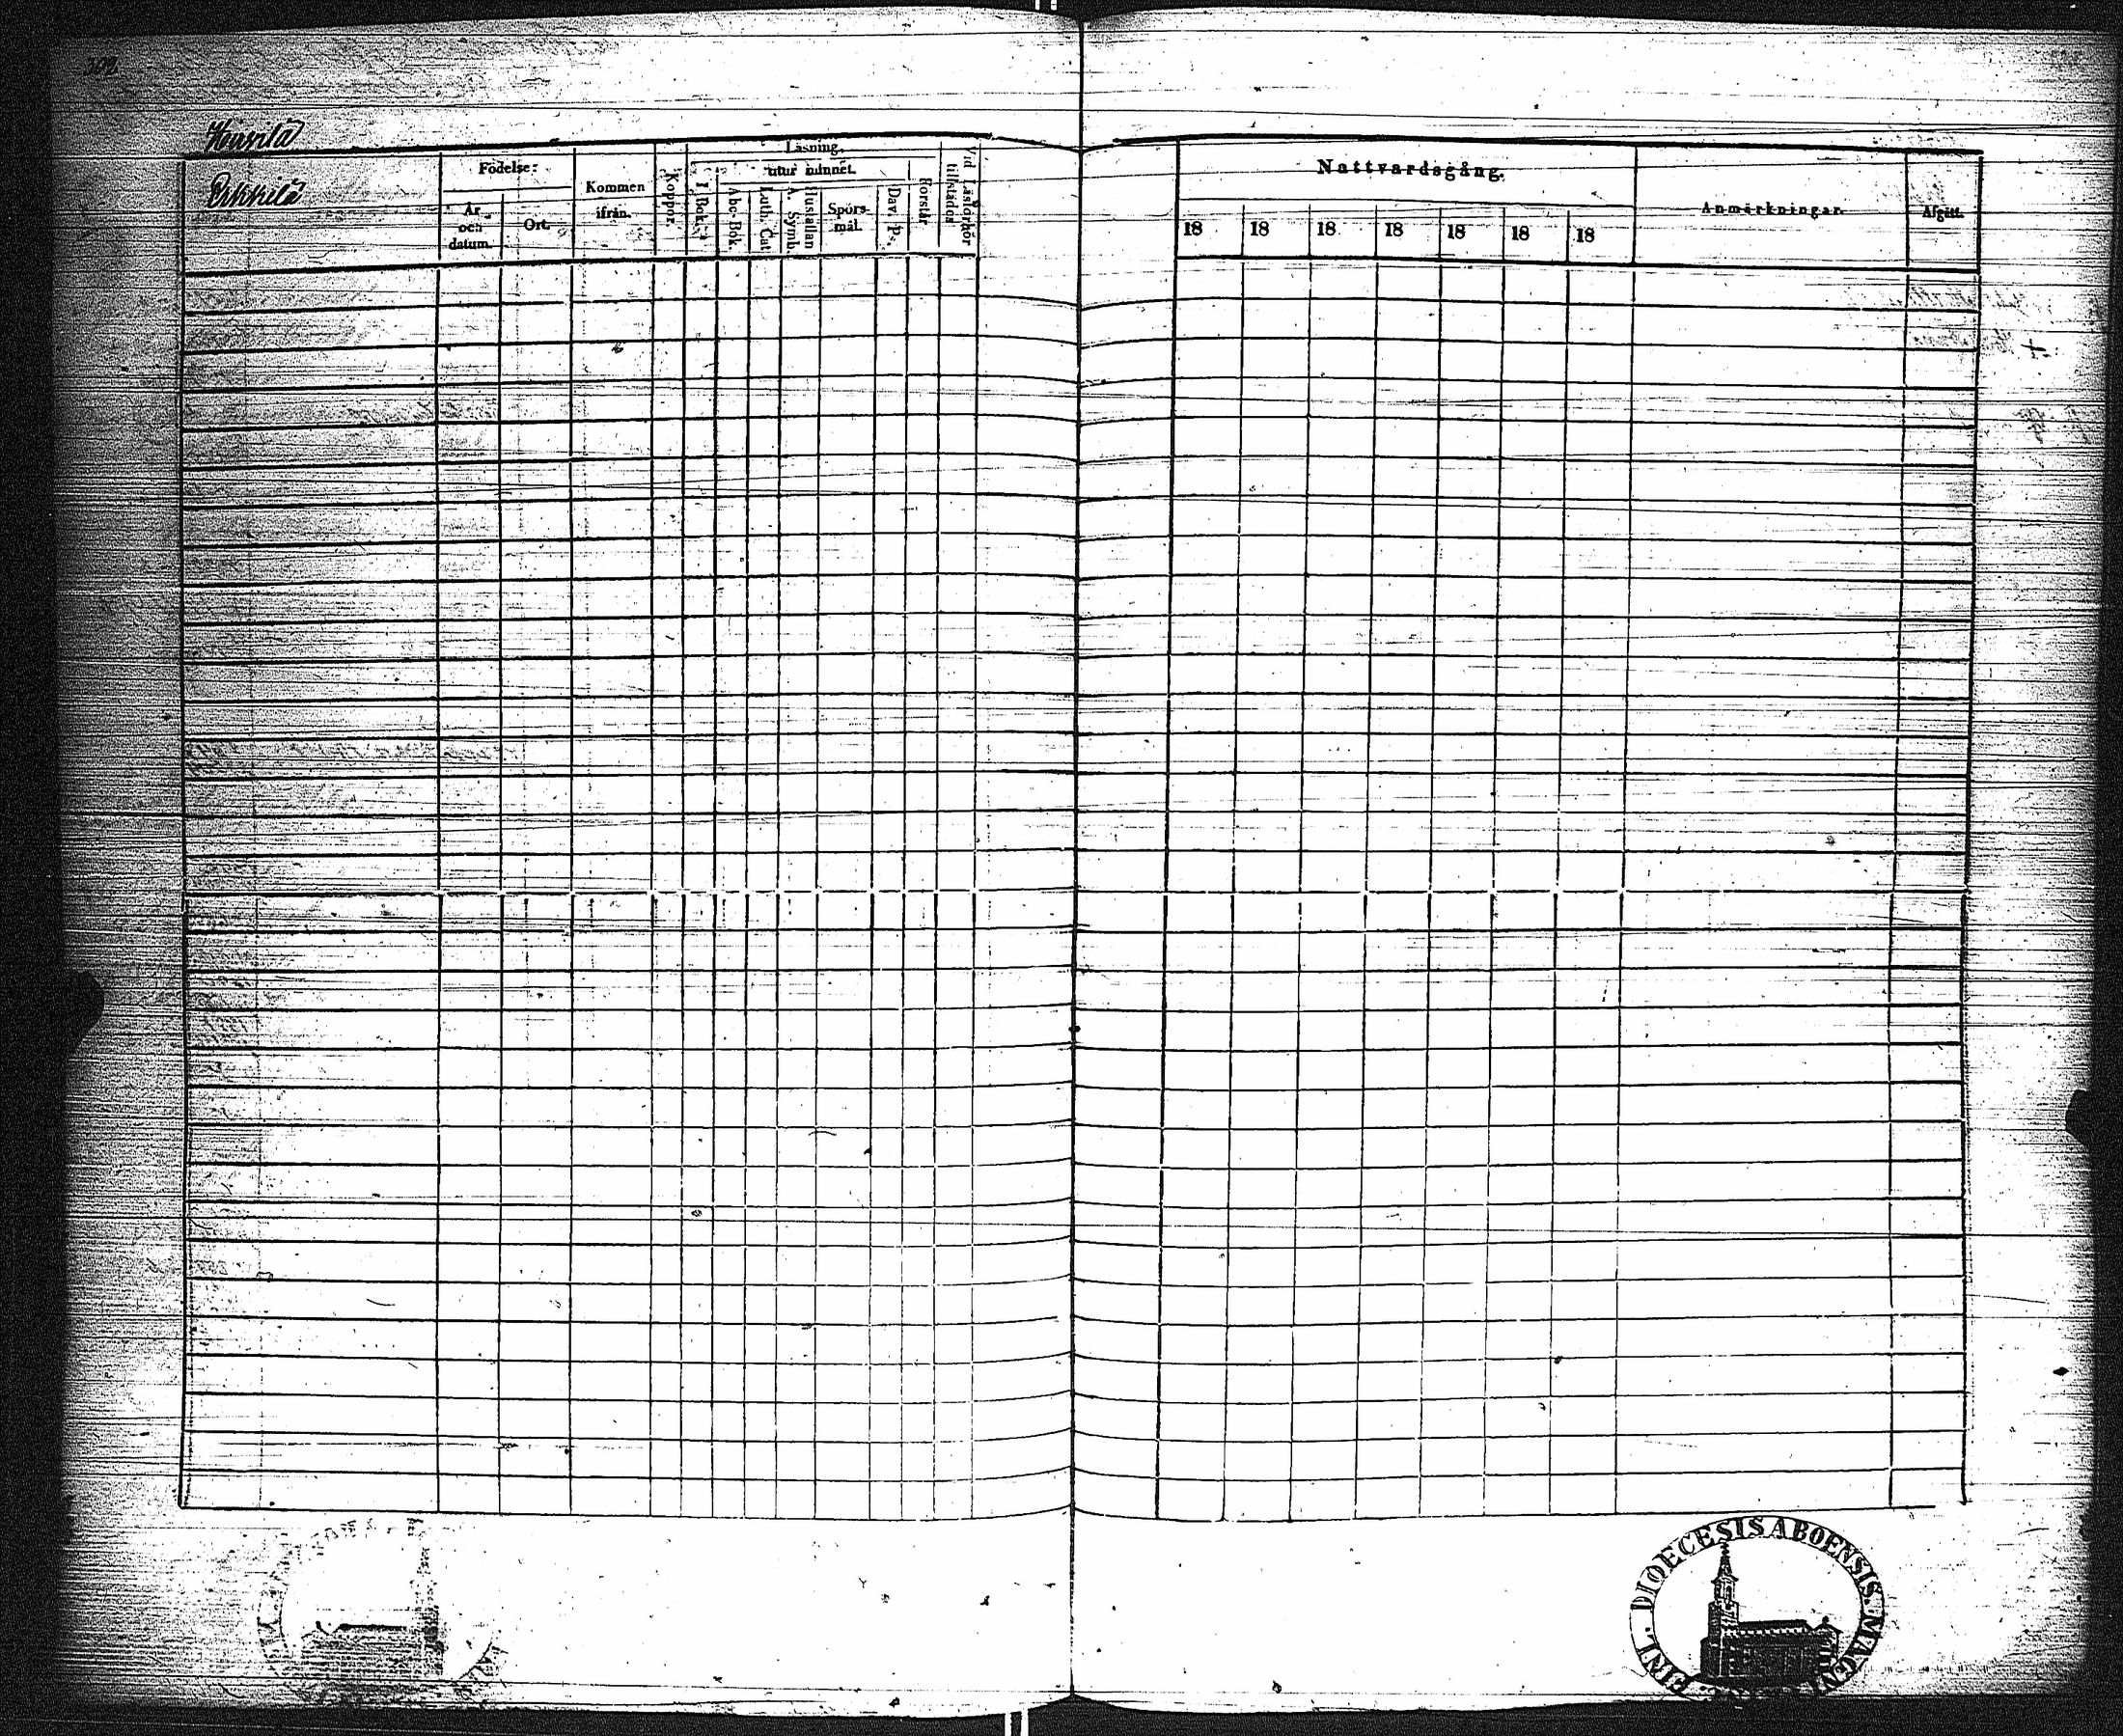 Erkkilä
Födelse:
År och datum.
Ort.
Kommen ifrån.
Koppor.
Läsning.
utur minnet.
I Bok.
Abc-Bok.
Luth. Cat.
Hustaflan A. Symb.
Spörs-mål.
Dav. Ps.
Förstår.
Vid Läsförhör tillstädes
Nattvardsgång.
18 18 18 18 18 18 18
Anmärkningar.
Afgått.
DIOECESIS ABOENSIS